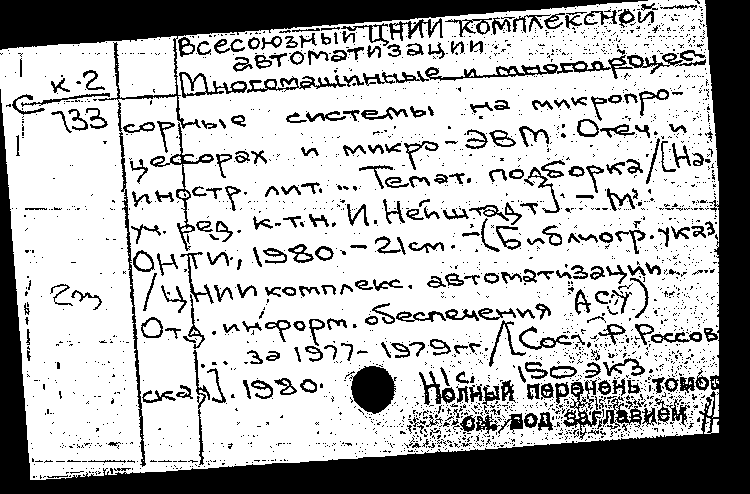 Всесоюзный ЦНИИ комплексной
автоматизации
К-2
Многомашинные и многопроцес-
733
сорные системы на микропро-
цессорах и микро-ЭВМ: Отеч. и
иностр. лит. ... Темат. подборка / [На-
уч. ред. к.т.н. И. Нейштадт]. - М.:
ОНТИ, 1980. - 21 см. - (Библиогр. указ.
/ ЦНИИ комплекс. автоматизации.
Отд. информ. обеспечения АСУ).
... за 1977-1979 гг. / [Сост. Р. Россов-
ская]. 1980. Н/с. 150 экз.
Полный перечень томов
см. под заглавием